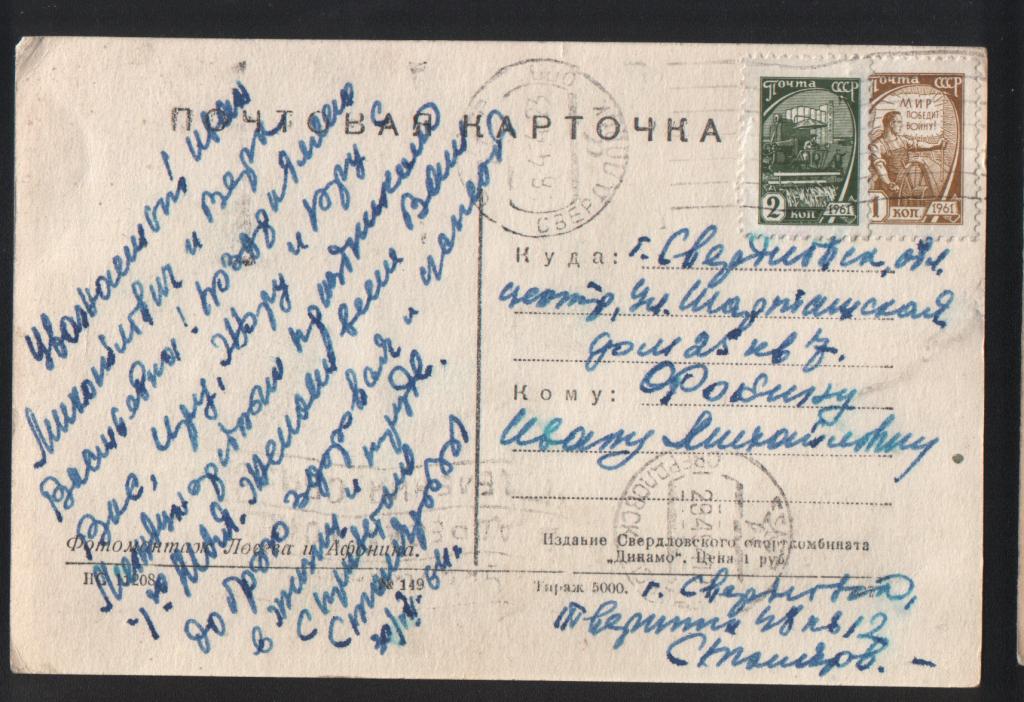 ПОЧТОВАЯ КАРТОЧКА
Почта СССР
2 коп 1961
Почта СССР
МИР
ПОБЕДИТ
ВОЙНУ!
1 коп. 1961
Уважаемый Иван
Михайлович и Вера
Васильевна! Поздравляем
Вас, Иру, Жору и Юру с
Международным праздником
1-ое Мая. Желаем всем Вам
доброго здоровья и успехов
в жизни и труде.
С приветом
Столяровы
64 г.
Куда: г. Свердловск, обл.
центр, ул. Шарташская
дом 25 кв 7.
Кому: Фобину
Ивану Михайловичу
Фотомонтаж Лосева и Афонина.
№ 149
Издание Свердловского спорткомбината
„Динамо“. Цена 1 руб.
Тираж 5000.
г. Свердловск,
Тверитина 48 кв 12
Столяров.
СВЕРДЛОВСК